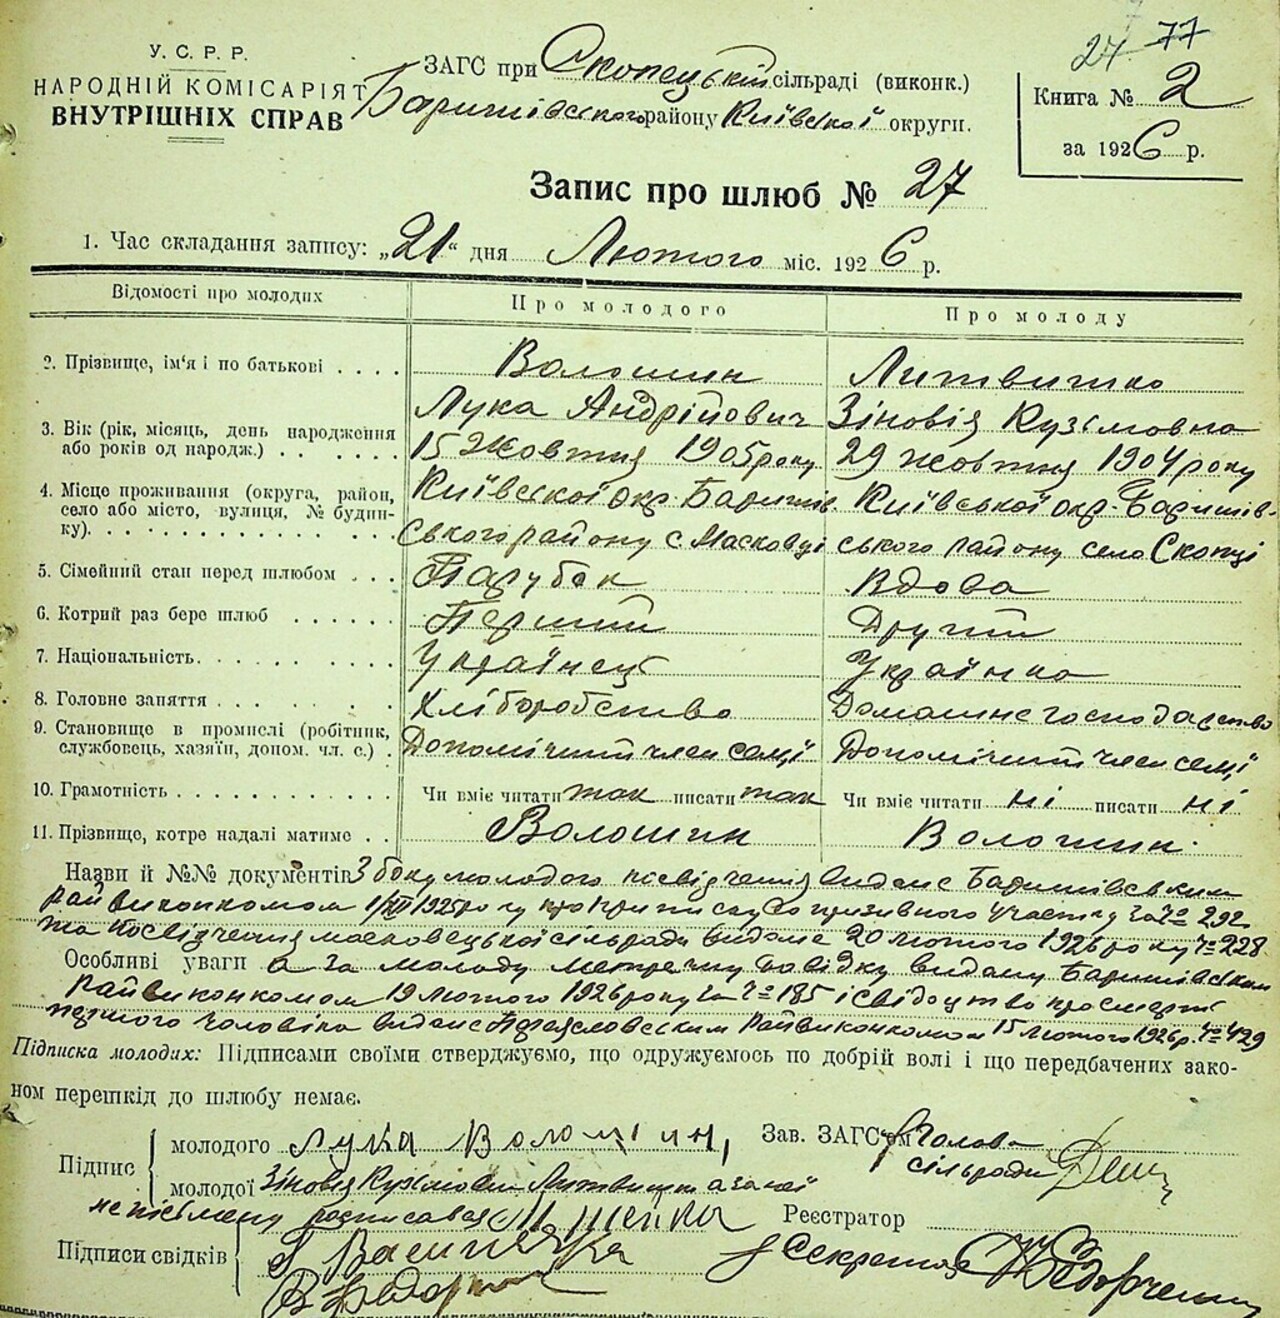 27 77
У. С. Р. Р.
НАРОДНІЙ КОМІСАРІЯТ
ВНУТРІШНІХ СПРАВ
ЗАГС при Скопецькій сільраді (виконк.)
Баришівського району Київської округи.
Книга № 2
за 1926 р.
Запис про шлюб № 27
1. Час складання запису: „21" дня Лютого міс. 1926 р.
Відомості про молодих
Про молодого
Про молоду
2. Прізвище, ім'я і по батькові
Волошин
Лука Андрійович
Литвишко
Зіновія Кузьмовна
3. Вік (рік, місяць, день народження
або років од народж.)
15 Жовтня 1905 року
29 жовтня 1904 року
4. Місце проживання (округа, район,
село або місто, вулиця, № будин-
ку)
Київської окр. Баришів-
ського району с Масковці
Київської окр. Баришів-
ського району село Скопці
5. Сімейний стан перед шлюбом
Парубок
Вдова
6. Котрий раз бере шлюб
Перший
Другий
7. Національність
Українець
Українка
8. Головне заняття
Хліборобство
Домашнє господарство
9. Становище в промислі (робітник,
службовець, хазяїн, допом. чл. с.)
Допомічний член семʼї
Допомічний член семʼї
10. Грамотність
Чи вміє читати так писати так
Чи вміє читати ні писати ні
11. Прізвище, котре надалі матиме
Волошин
Волошин.
Назви й №№ документів З боку молодого посвідчення видане Баришівським
райвиконкомом 1925 року про приписку до призивного участку за № 292
та посвідчення масковецької сільради видане 20 лютого 1926 року № 228
Особливі уваги а за молоду метречну довідку видану Баришівським
Райвиконкомом 19 лютого 1926 року за № 185 і свідоцтво про смерть
першого чоловіка видане Переяславським Райвиконкомом 15 лютого 1926 р. № 429
Підписка молодих: Підписами своїми стверджуємо, що одружуємось по добрій волі і що передбачених зако-
ном перешкід до шлюбу немає.
Підпис
молодого Лука Волошин,
молодої Зіновія Кузьмовна Литвишко а за неї
не письмену росписався
Зав. ЗАГС'ом Голова
сільради
Реєстратор
Підписи свідків
Секретар